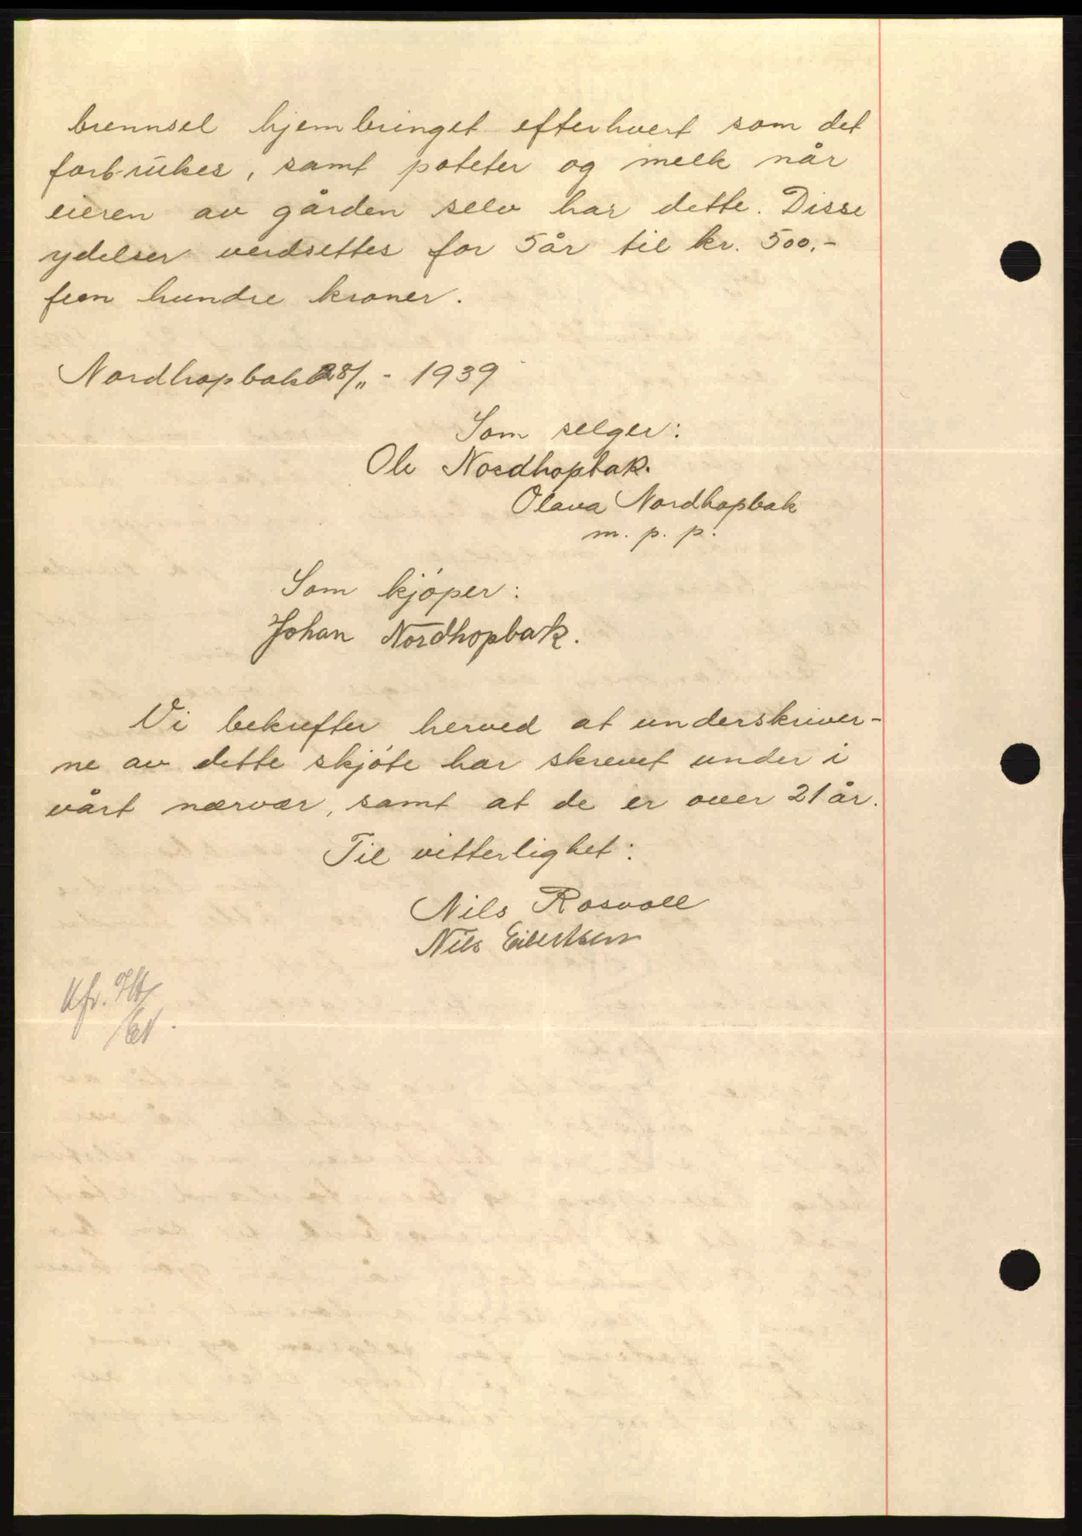 brennsel hjembringet efterhvert som det
forbrukes, samt poteter og melk når
eieren av gården selv har dette. Disse
ydelser verdsettes for 5 år til kr. 500,-
fem hundre kroner.
Nordhopbak 28/11 - 1939
Som selger:
Ole Nordhopbak.
Olava Nordhopbak
m. p. p.
Som kjøper:
Johan Nordhopbak.
Vi bekrefter herved at underskriver-
ne av dette skjøte har skrevet under i
vårt nærvær, samt at de er over 21 år.
Til vitterlighet:
Nils Rosvoll
Nils Eilertsen
Kfr.